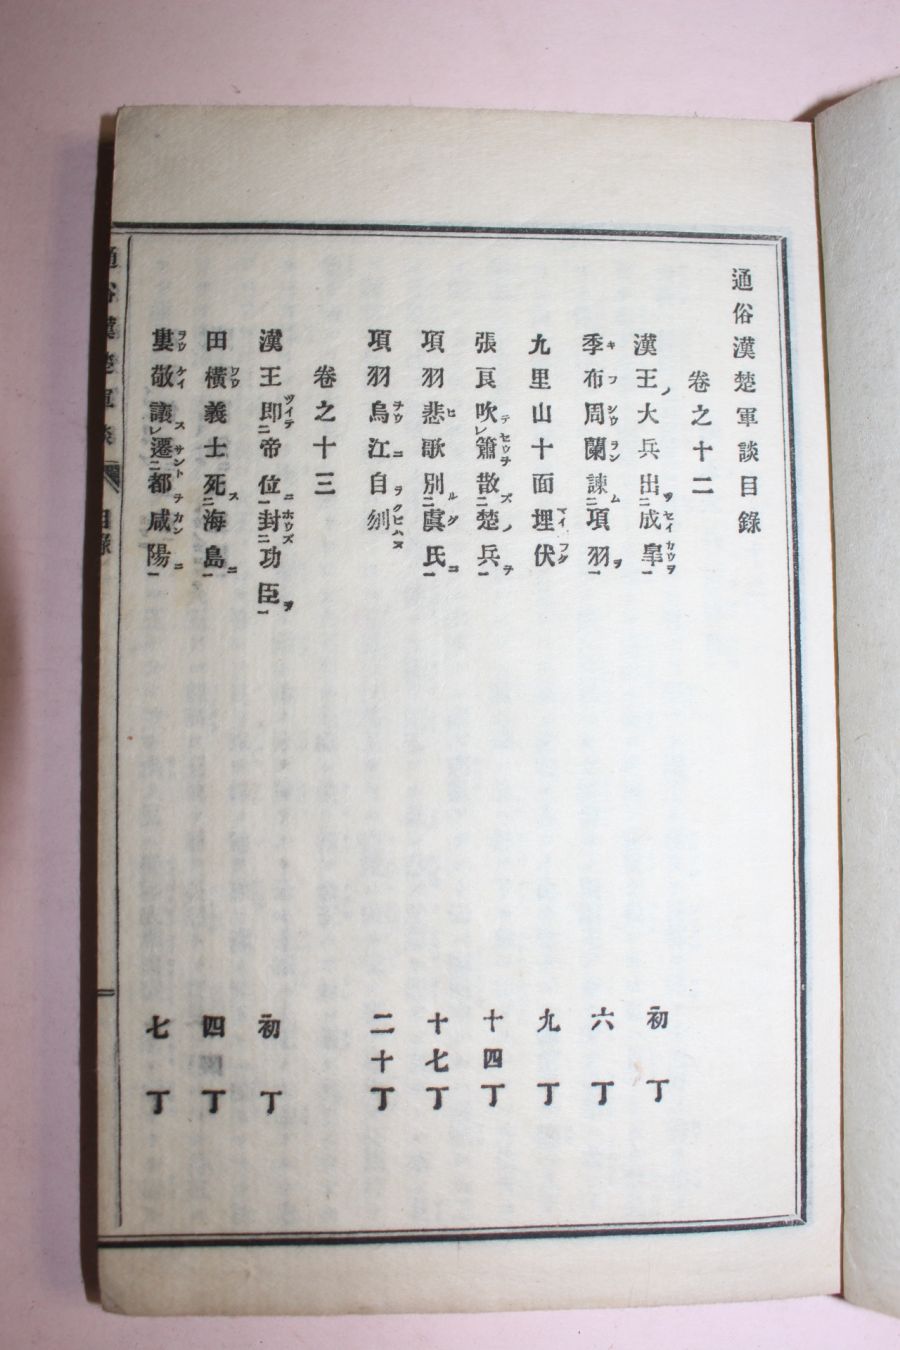 通俗漢楚軍談目錄
卷之十二
漢王大兵出成皐 初丁
季布周蘭諫項羽 六丁
九里山十面埋伏 九丁
張良吹簫散楚兵 十四丁
項羽悲歌別虞氏 十七丁
項羽烏江自刎 二十丁
卷之十三
漢王即帝位封功臣 初丁
田橫義士死海島 四丁
婁敬議遷都咸陽 七丁
通俗漢楚軍談 目錄